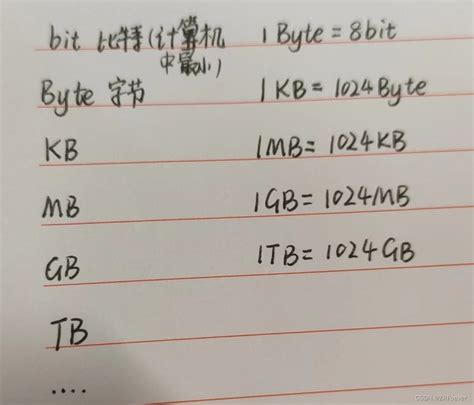 bit 比特(计算机中最小) 1 Byte = 8bit
Byte 字节 1 KB = 1024Byte
KB 1MB = 1024KB
MB 1GB = 1024MB
GB 1TB = 1024GB
TB
....